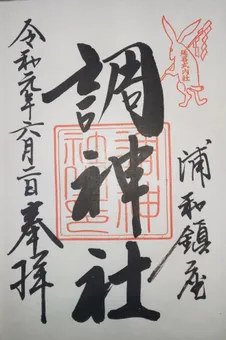 延喜式内社
浦和鎮座
調神社
令和元年六月二日奉拝